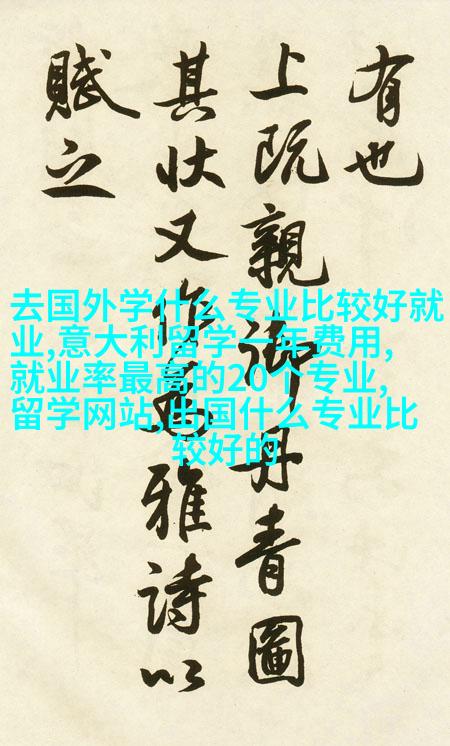 有也
上既親御丹青圖
其状又作為雅詩以
賦之
去国外学什么专业比较好就
业,意大利留学一年费用,
就业率最高的20个专业,
留学网站,出国什么专业比
较好的